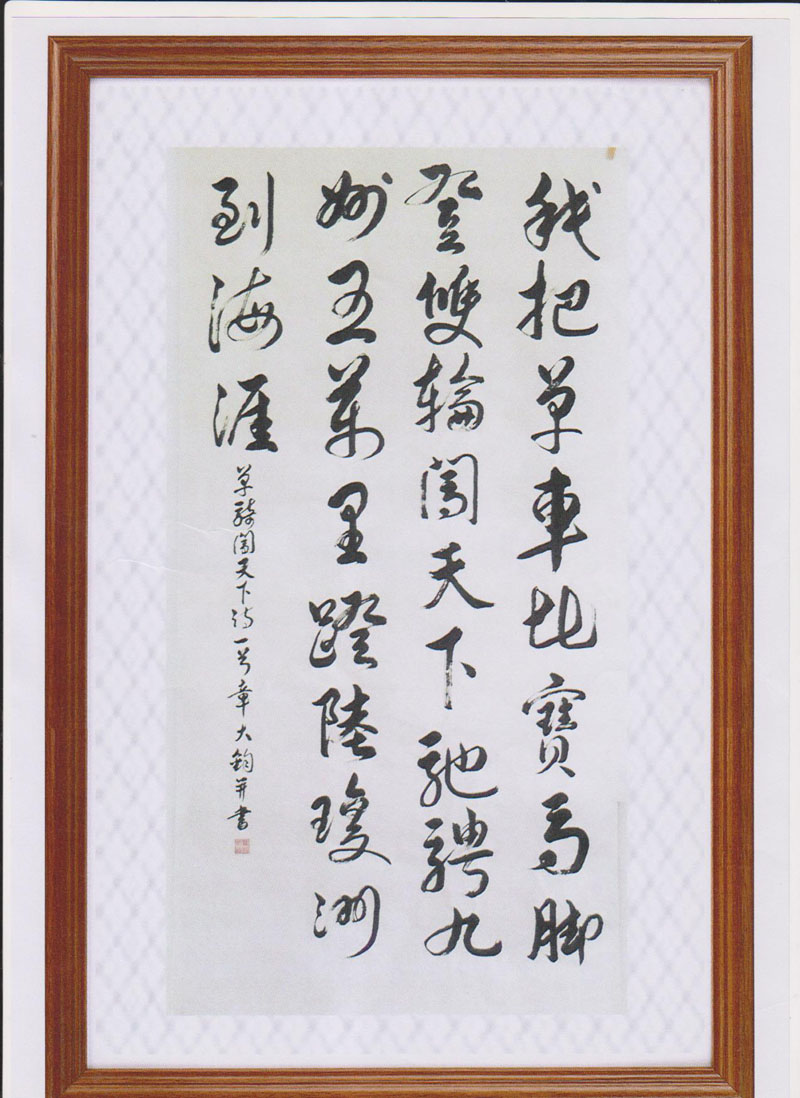 我把单車比寶马脚
登雙輪闖天下馳騁九
州五萬里蹬陸瓊洲
到海涯
单騎闖天下诗一首章大鈞并書